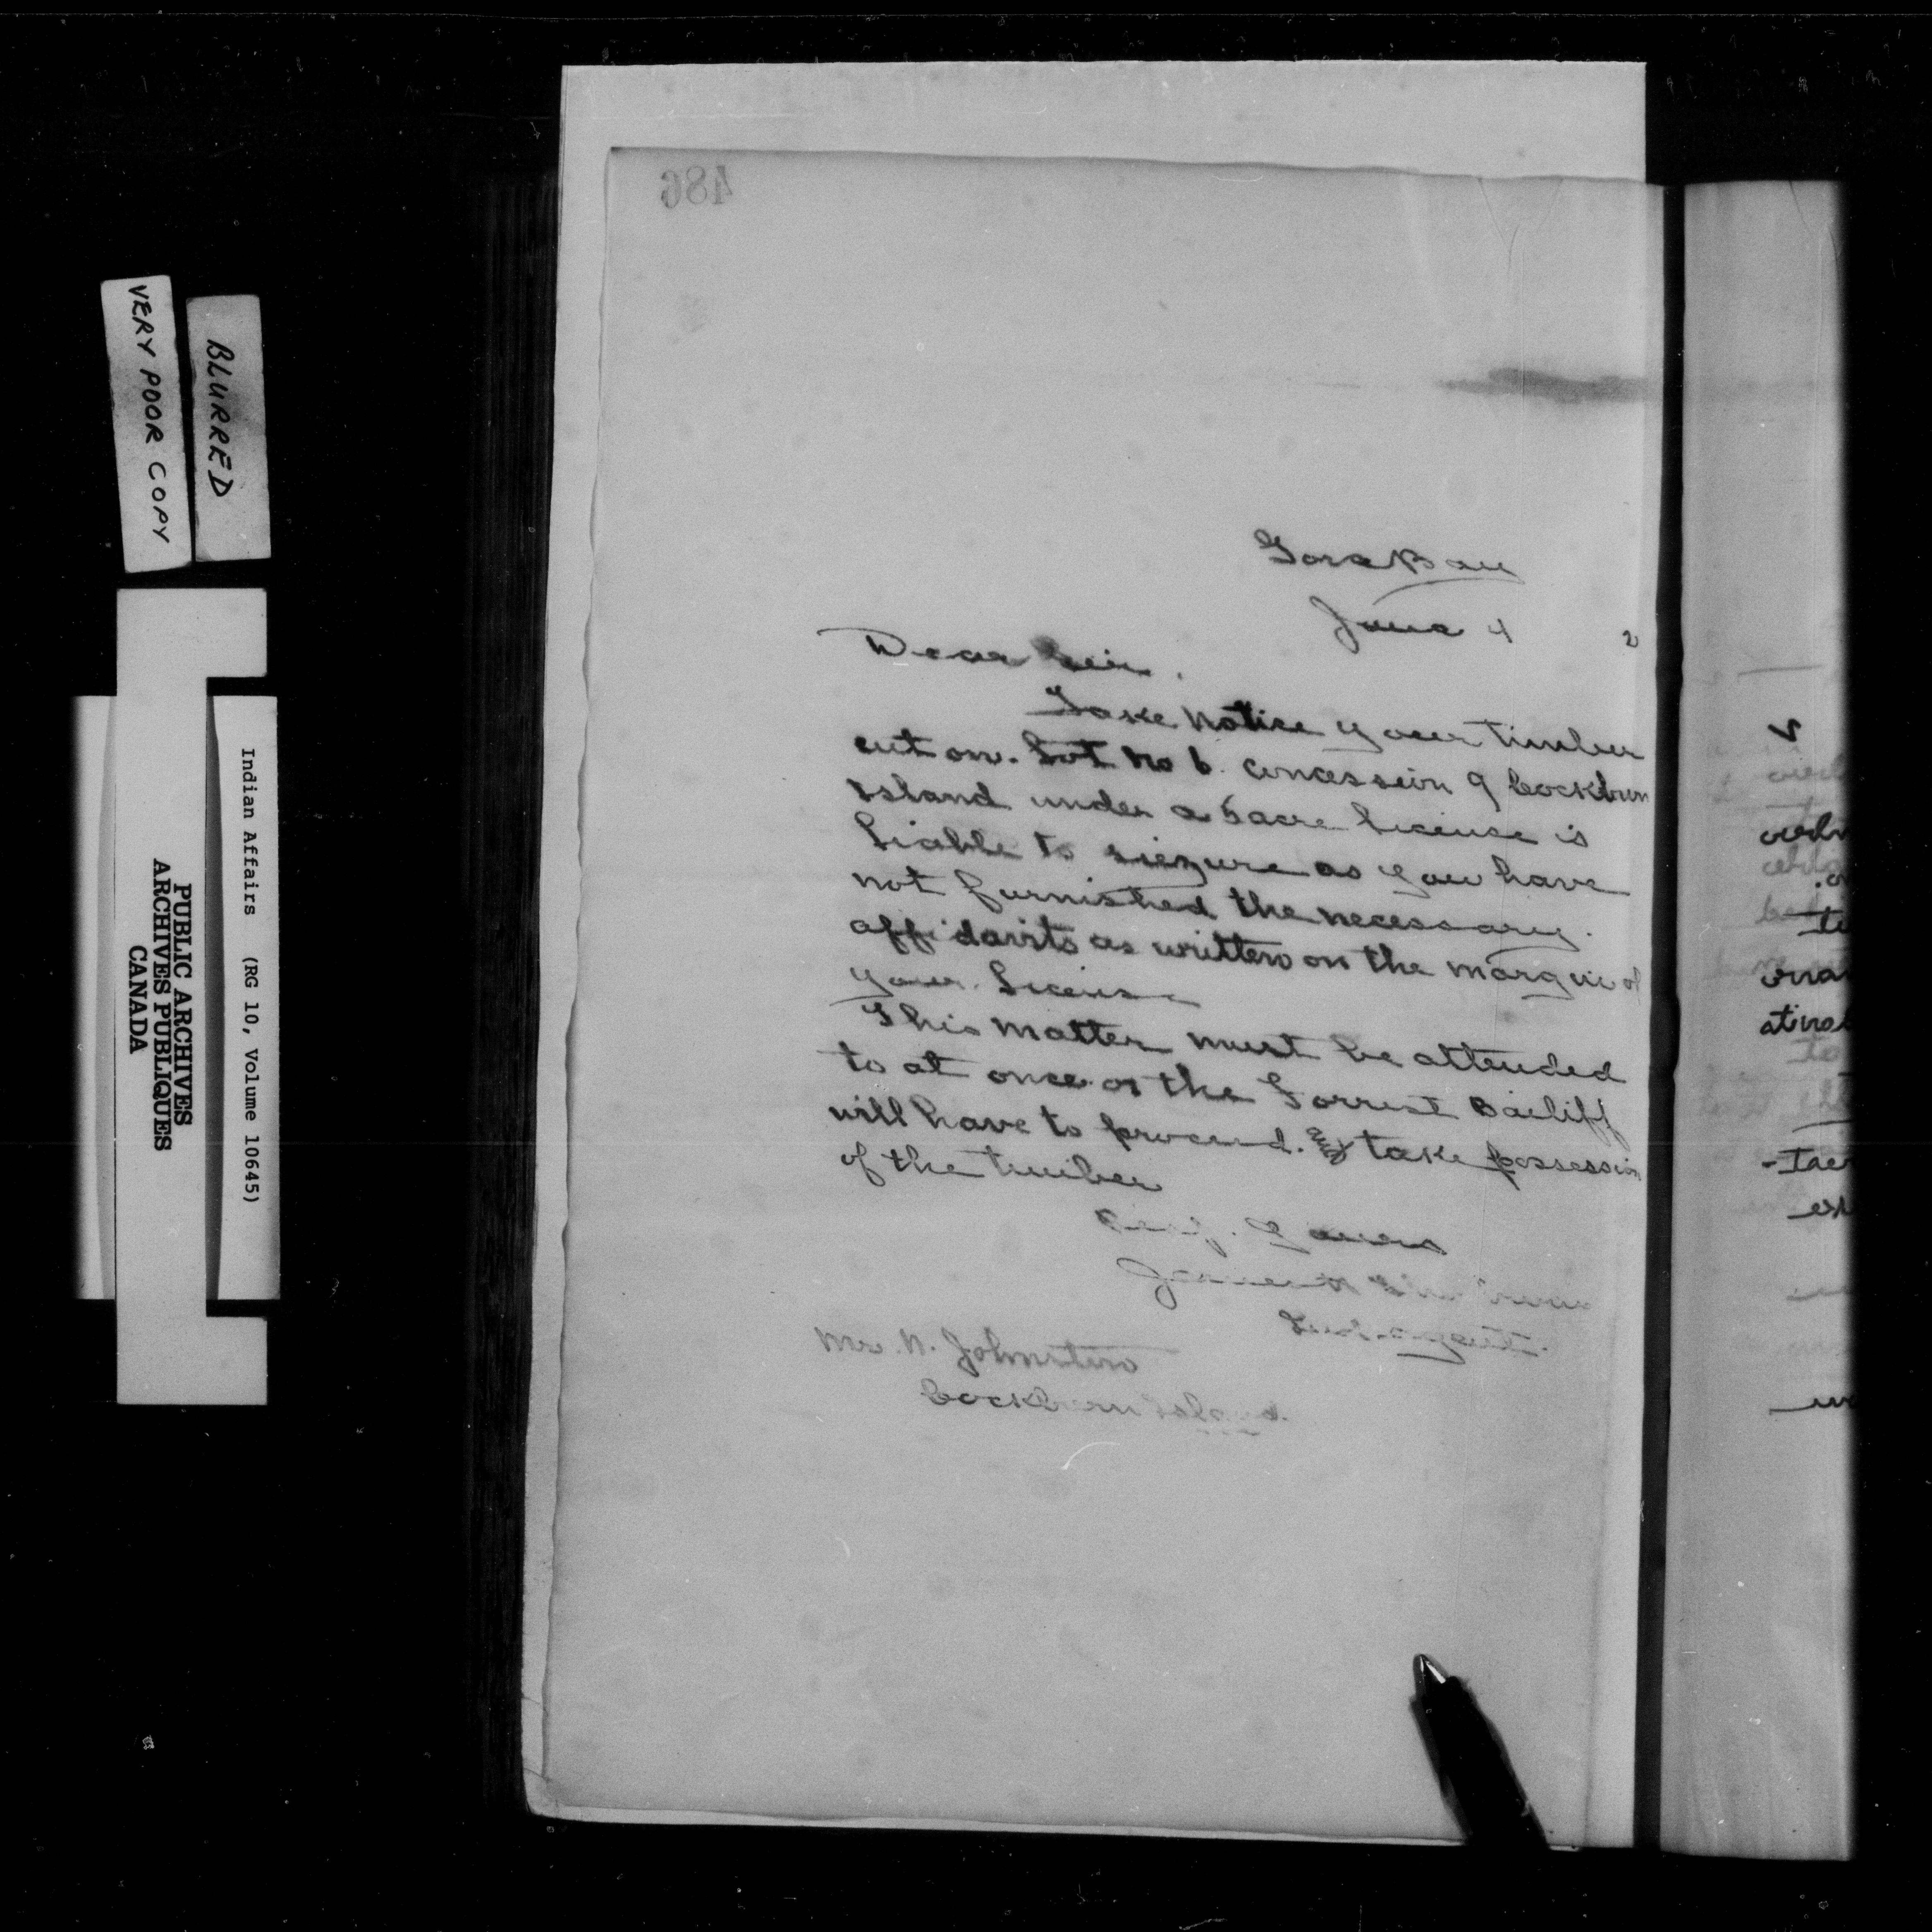 486
VERY POOR COPY
BLURRED
Indian Affairs (RG 10, Volume 10645)
PUBLIC ARCHIVES
ARCHIVES PUBLIQUES
CANADA
Gore Bay
June 4 2
Dear Sir.
Take notice your timber
cut on. Lot No 6. concession 9 Cockburn
Island under a 5 acre License is
Liable to siezure as you have
not furnished the necessary.
affidavits as written on the margin of
your. License
This matter must be attended
to at once or the Forrest Bailiff
will have to proceed. & take possession
of the timber
Resp. Yours
Ind. agent.
Mr. N. Johnston
Cockburn Island.